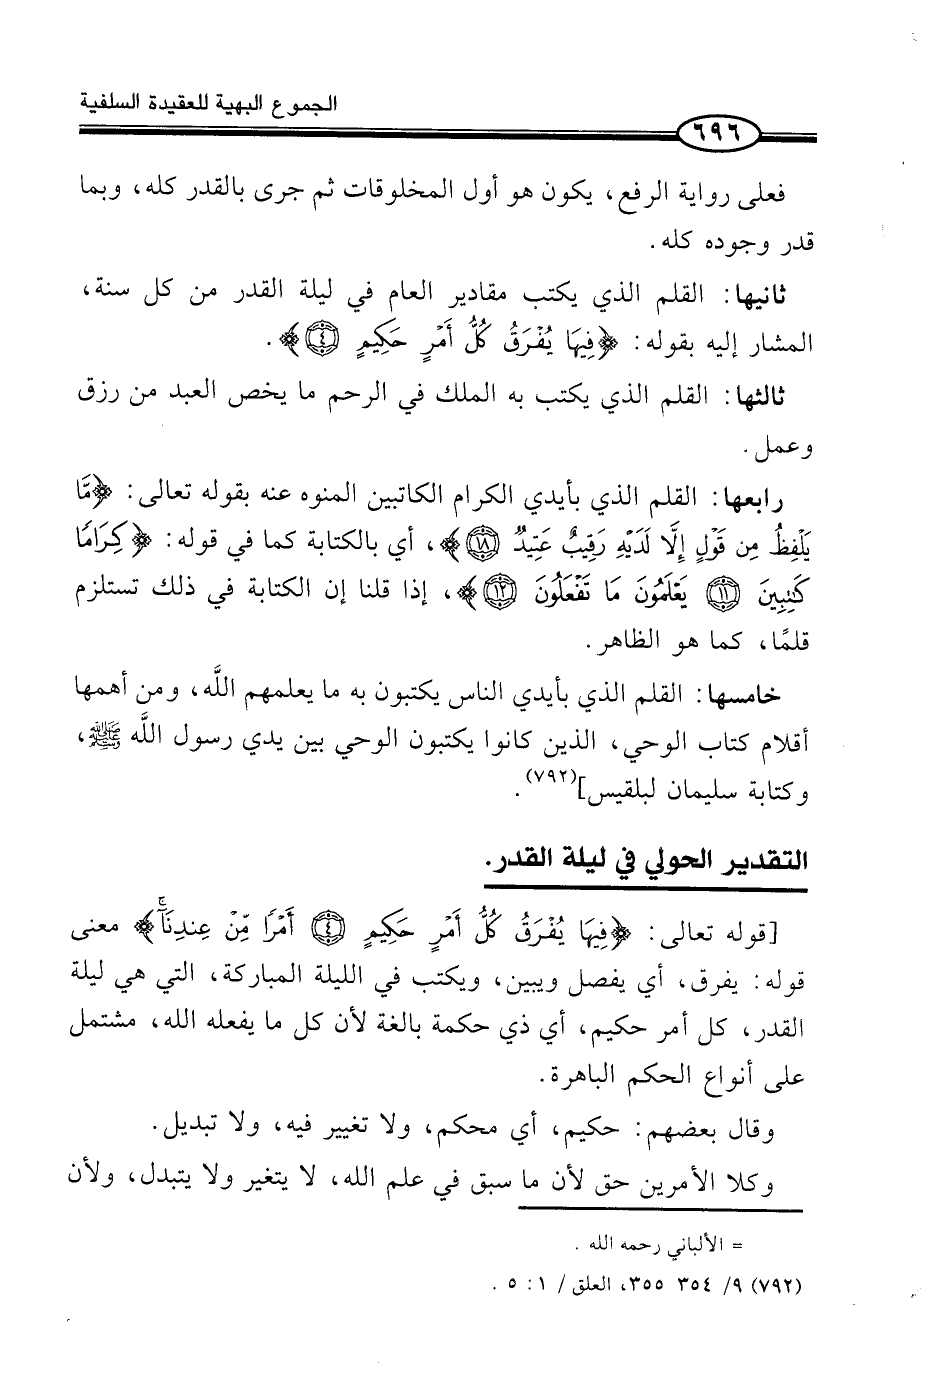 الجموع البهية للعقيدة السلفية
٦٩٦
فعلى رواية الرفع، يكون هو أول المخلوقات ثم جرى بالقدر كله، وبما
قدر وجوده كله.
ثانيها: القلم الذي يكتب مقادير العام في ليلة القدر من كل سنة،
المشار إليه بقوله: ﴿فِيهَا يُفْرَقُ كُلُّ أَمْرٍ حَكِيمٍ ۝٤﴾.
ثالثها: القلم الذي يكتب به الملك في الرحم ما يخص العبد من رزق
وعمل.
رابعها: القلم الذي بأيدي الكرام الكاتبين المنوه عنه بقوله تعالى: ﴿مَّا
يَلْفِظُ مِن قَوْلٍ إِلَّا لَدَيْهِ رَقِيبٌ عَتِيدٌ ۝١٨﴾، أي بالكتابة كما في قوله: ﴿كِرَامًا
كَٰتِبِينَ ۝١١ يَعْلَمُونَ مَا تَفْعَلُونَ ۝١٢﴾، إذا قلنا إن الكتابة في ذلك تستلزم
قلمًا، كما هو الظاهر.
خامسها: القلم الذي بأيدي الناس يكتبون به ما يعلمهم اللَّه، ومن أهمها
أقلام كتاب الوحي، الذين كانوا يكتبون الوحي بين يدي رسول اللَّه ﷺ،
وكتابة سليمان لبلقيس](٧٩٢).
التقدير الحولي في ليلة القدر.
[قوله تعالى: ﴿فِيهَا يُفْرَقُ كُلُّ أَمْرٍ حَكِيمٍ ۝٤ أَمْرًا مِّنْ عِندِنَآ ۚ﴾ معنى
قوله: يفرق، أي يفصل ويبين، ويكتب في الليلة المباركة، التي هي ليلة
القدر، كل أمر حكيم، أي ذي حكمة بالغة لأن كل ما يفعله الله، مشتمل
على أنواع الحكم الباهرة.
وقال بعضهم: حكيم، أي محكم، ولا تغيير فيه، ولا تبديل.
وكلا الأمرين حق لأن ما سبق في علم الله، لا يتغير ولا يتبدل، ولأن
= الألباني رحمه الله .
(٧٩٢) ٩/ ٣٥٤ ٣٥٥، العلق/ ١: ٥ .